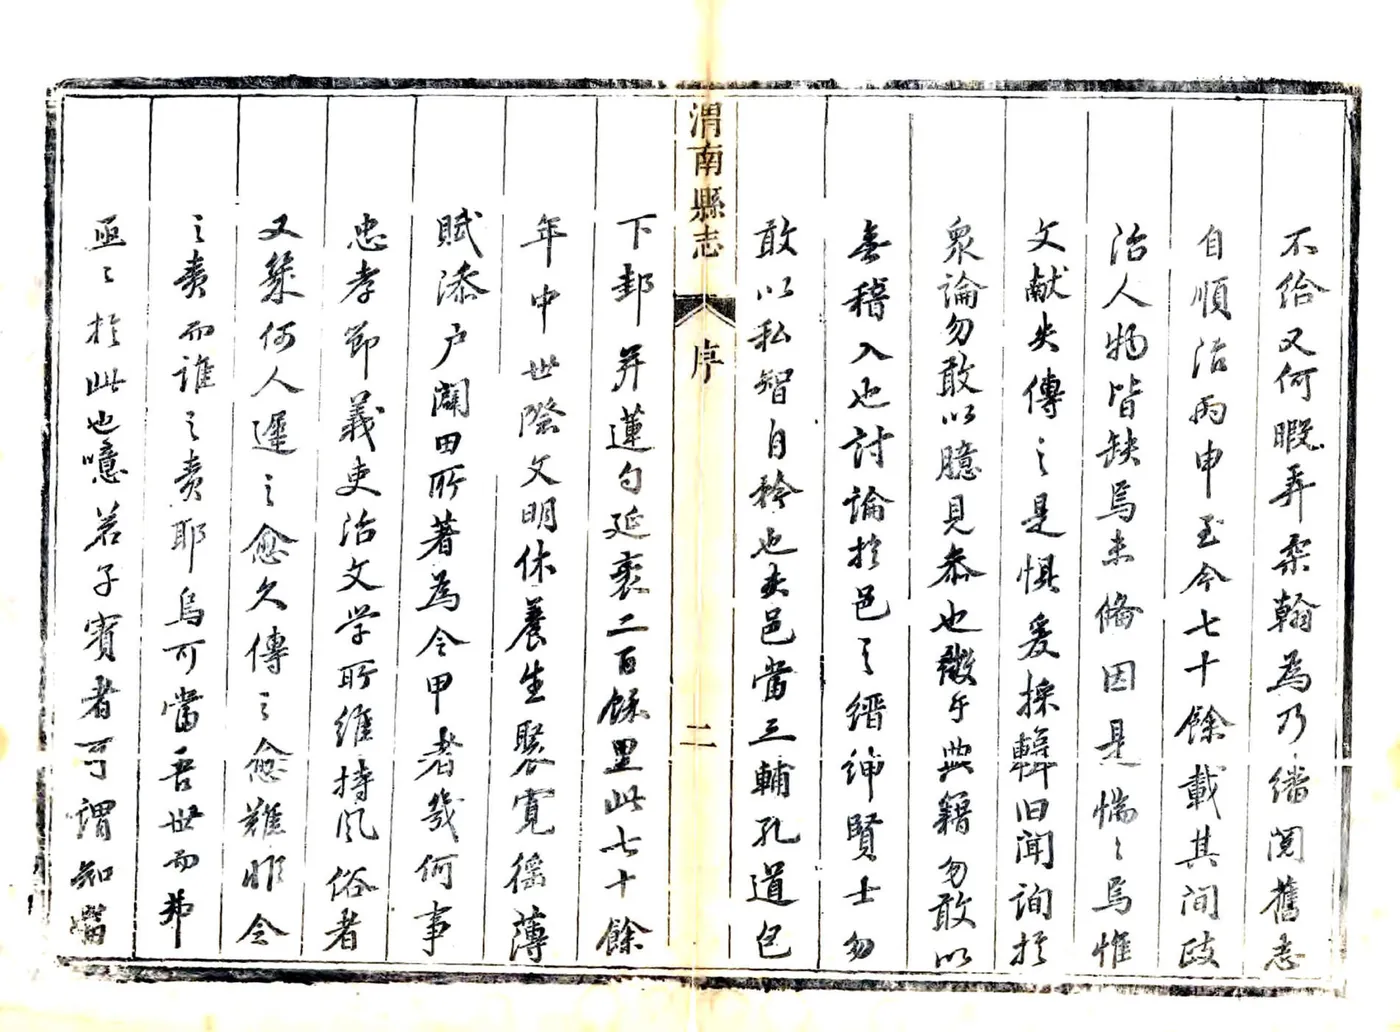 不給又何暇弄柔翰為乃繙閱舊志
自順治丙申至今七十餘載其間政
治人物皆缺焉未備因是惴〻焉惟
文献失傳之是懼爰採輯旧聞詢於
衆論勿敢以臆見叅也徵乎典籍勿敢以
無稽入也討論於邑之縉紳賢士勿
敢以私智自矜也夫邑當三輔孔道包
渭南縣志
序
二
下邽并蓮勺延袤二百餘里此七十餘
年中世際文明休養生聚寬徭薄
賦添户闢田所著為令甲者幾何事
忠孝節義吏治文学所維持風俗者
又幾何人遲之愈久傳之愈難非令
之責而誰之責耶烏可當吾世而弗
亟〻於此也噫若子賓者可謂知當